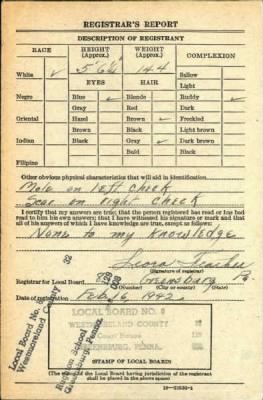 REGISTRAR'S REPORT
DESCRIPTION OF REGISTRANT
RACE HEIGHT (Approx.) WEIGHT (Approx.) COMPLEXION
5' 6½ 144
White ✓ EYES HAIR Sallow
Light
Negro Blue ✓ Blonde Ruddy ✓
Gray Red Dark
Oriental Hazel Brown ✓ Freckled
Brown Black Light brown
Indian Black Gray ✓ Dark brown
Bald Black
Filipino
Other obvious physical characteristics that will aid in identification
Mole on left cheek
Scar on right cheek
I certify that my answers are true; that the person registered has read or has had read to him his own answers; that I have witnessed his signature or mark and that all of his answers of which I have knowledge are true, except as follows:
None to my knowledge
(Signature of registrar)
Registrar for Local Board Greensburg Pa
Date of registration Feb 16 1942
LOCAL BOARD NO. 
WESTMORELAND COUNTY
Court House
GREENSBURG, PENNA.
STAMP OF LOCAL BOARD
Local Board No.
Westmoreland County
(The stamp of the Local Board having jurisdiction of the registrant shall be placed in the above space)